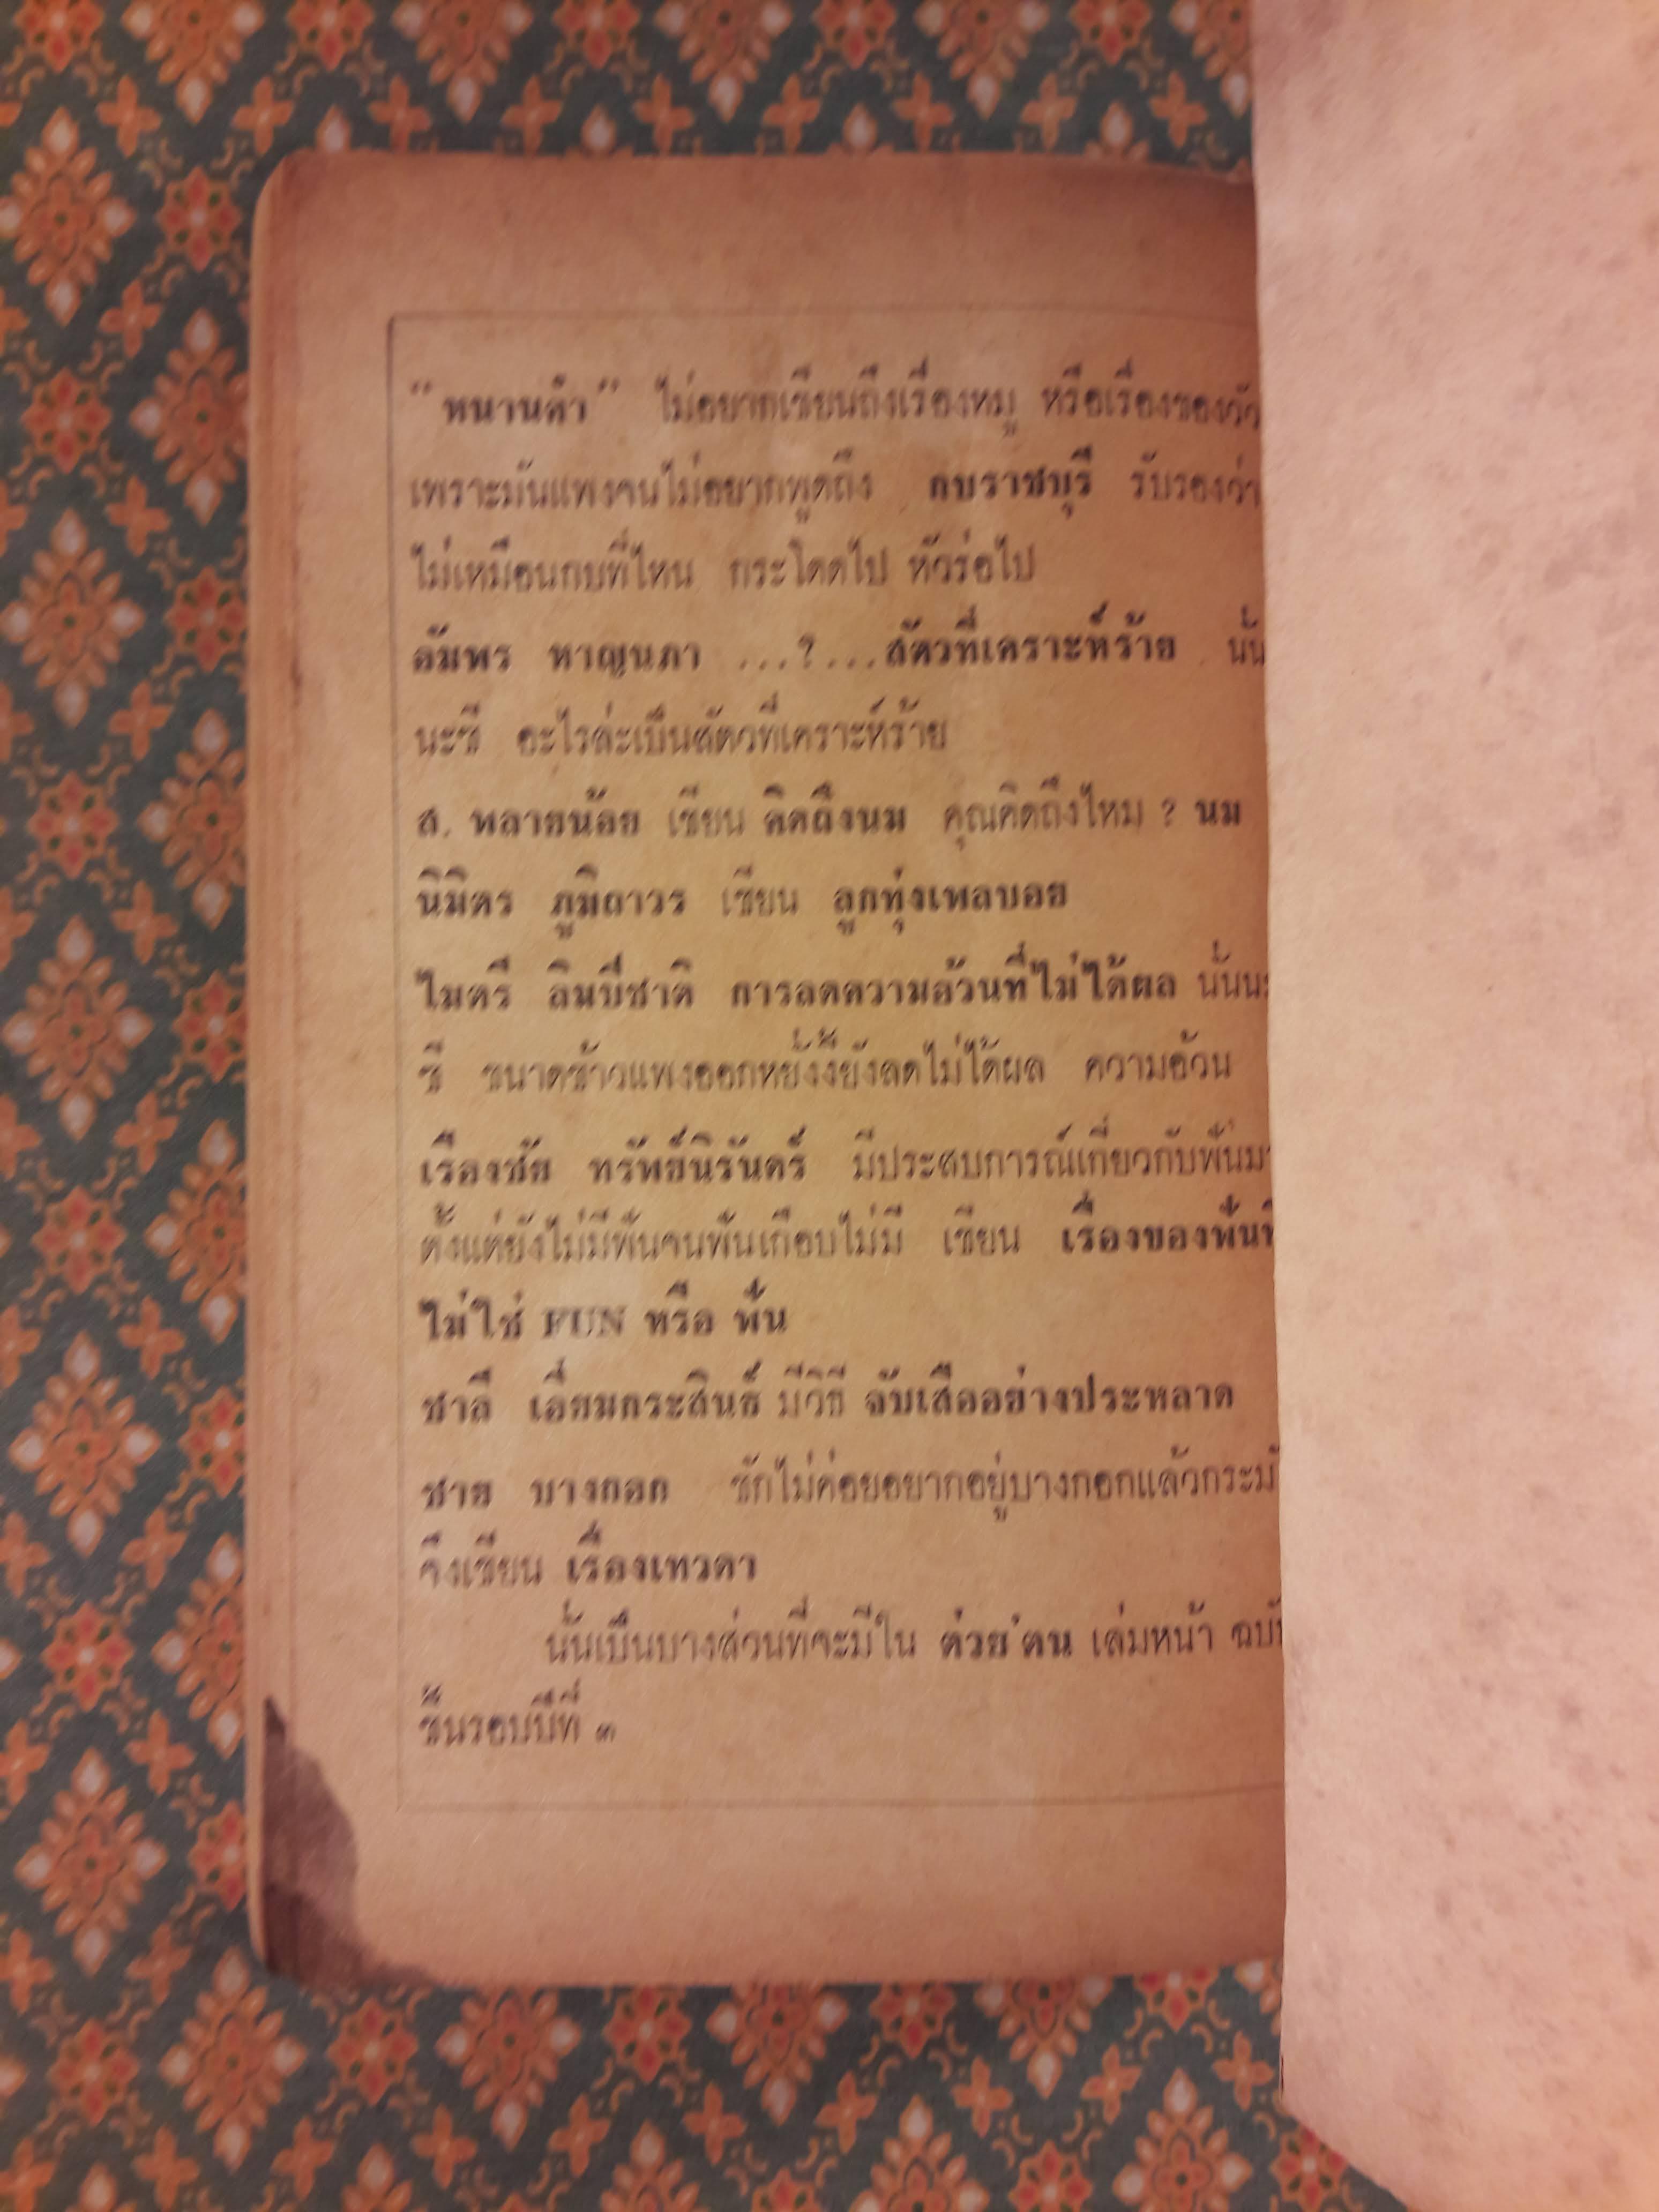 "หนานคำ" ไม่อยากเขียนถึงเรื่องหมู หรือเรื่องของวัว
เพราะมันแพงจนไม่อยากพูดถึง กบราชบุรี รับรองว่า
ไม่เหมือนกบที่ไหน กระโดดไป หัวร่อไป
อัมพร หาญนภา ...?...สัตว์ที่เคราะห์ร้าย นั่น
นะซี อะไรล่ะเป็นสัตว์ที่เคราะห์ร้าย
ส. พลายน้อย เขียน คิดถึงนม คุณคิดถึงไหม ? นม
นิมิตร ภูมิถาวร เขียน ลูกทุ่งเพลบอย
ไมตรี ลิมปิชาติ การลดความอ้วนที่ไม่ได้ผล นั่นน
ซี ขนาดข้าวแพงออกหยั่งงี้ยังลดไม่ได้ผล ความอ้วน
เรืองชัย ทรัพย์นิรันดร์ มีประสบการณ์เกี่ยวกับฟันมา
ตั้งแต่ยังไม่มีฟันจนฟันเกือบไม่มี เขียน เรื่องของฟันที่
ไม่ใช่ FUN หรือ ฟั่น
ชาลี เอี่ยมกระสินธุ์ มีวิธี จับเสืออย่างประหลาด
ชาย บางกอก ชักไม่ค่อยอยากอยู่บางกอกแล้วกระมัง
จึงเขียน เรื่องเทวดา
นั่นเป็นบางส่วนที่จะมีใน ต่วย'ตูน เล่มหน้า ฉบับ
ขึ้นรอบปีที่ ๓